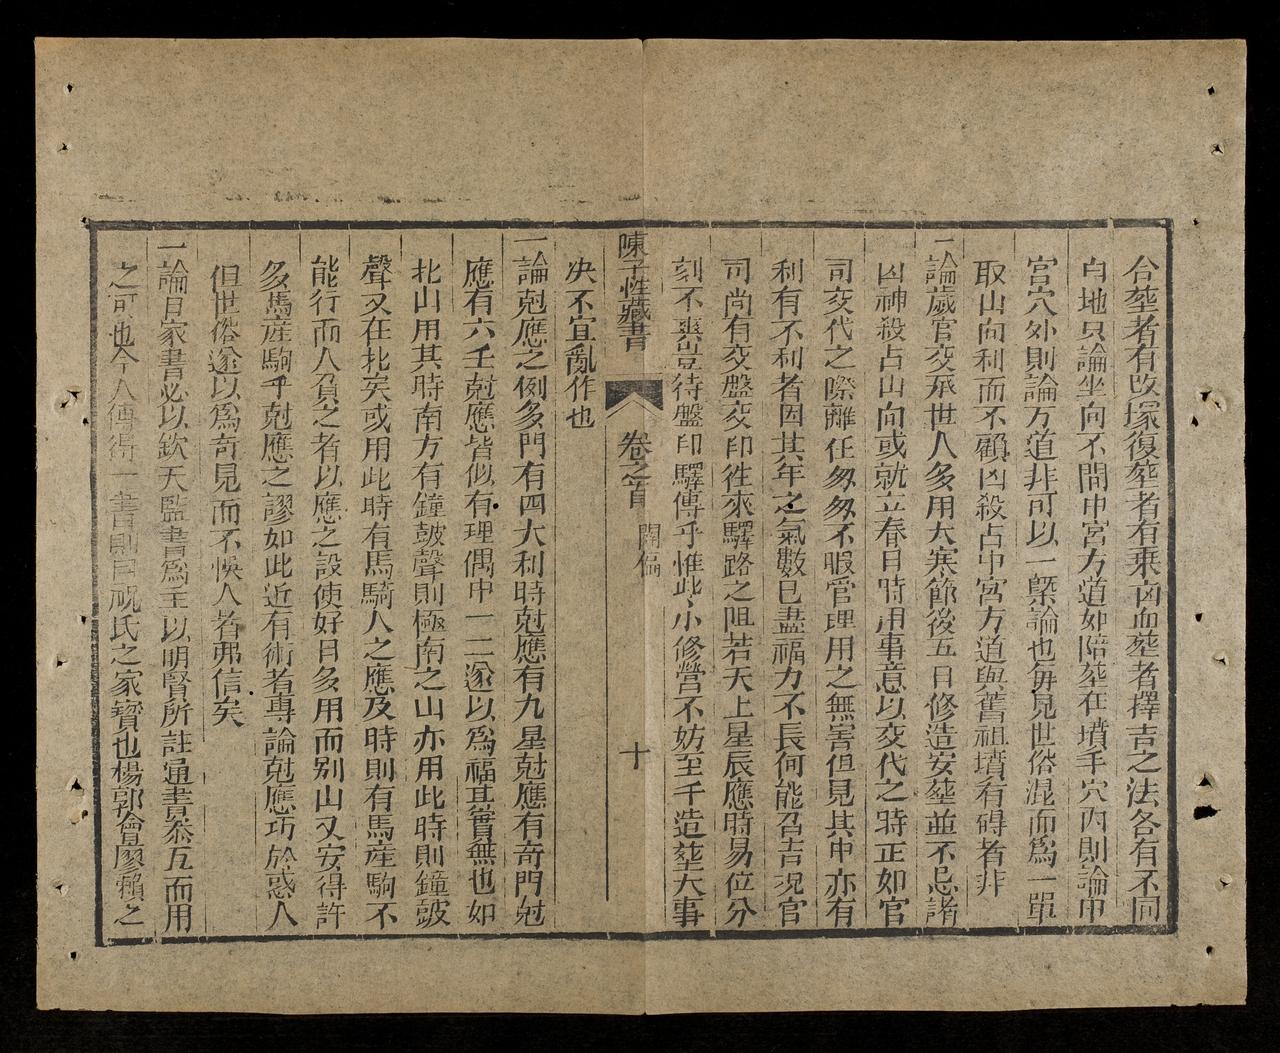 合塟者有改塚復塟者有乘凶而塟者擇吉之法各有不同
白地只論坐向不問中宮方道如陪塟在墳手穴內則論中
宮穴外則論方道非可以一槩論也毎見世俗混而爲一單
取山向利而不顧凶殺占中宮方道與舊祖墳有碍者非
一論歲官交承世人多用大寒節後五日修造安塟並不忌諸
凶神殺占山向或就立春日時用事意以交代之時正如官
司交代之際離任匆匆不暇管理用之無害但見其中亦有
利有不利者因其年之氣數已盡福力不長何能召吉况官
司尚有交盤交印徃來驛路之阻若天上星辰應時易位分
刻不爽豈待盤印驛傳乎惟此小修營不妨至于造塟大事
决不宜亂作也
陳子性藏書
卷之首
闢僞
十
一論尅應之例多門有四大利時尅應有九星尅應有奇門尅
應有六壬尅應皆似有理偶中一二遂以爲福其實無也如
北山用其時南方有鐘皷聲則極南之山亦用此時則鐘皷
聲又在北矣或用此時有馬騎人之應及時則有馬産駒不
能行而人負之者以應之設使好日多用而别山又安得許
多馬産駒乎尅應之謬如此近有術者專論尅應巧於惑人
但世俗遂以爲奇見而不悞人者弗信矣
一論日家書必以欽天監書爲主以明賢所註通書叅互而用
之可也今人傳得一書則曰祝氏之家寳也楊郭會廖賴之